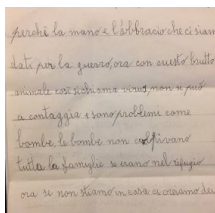 perchè la mano e l'abbraccio che ci siam
dati per la guerra, ora con questo brutto
animale così si chiama virus non se può
a contaggia e sono problemi come
bombe, le bombe non colpivano
tutta la famiglie si erano nel refugio
ora se non stiamo in casa ci